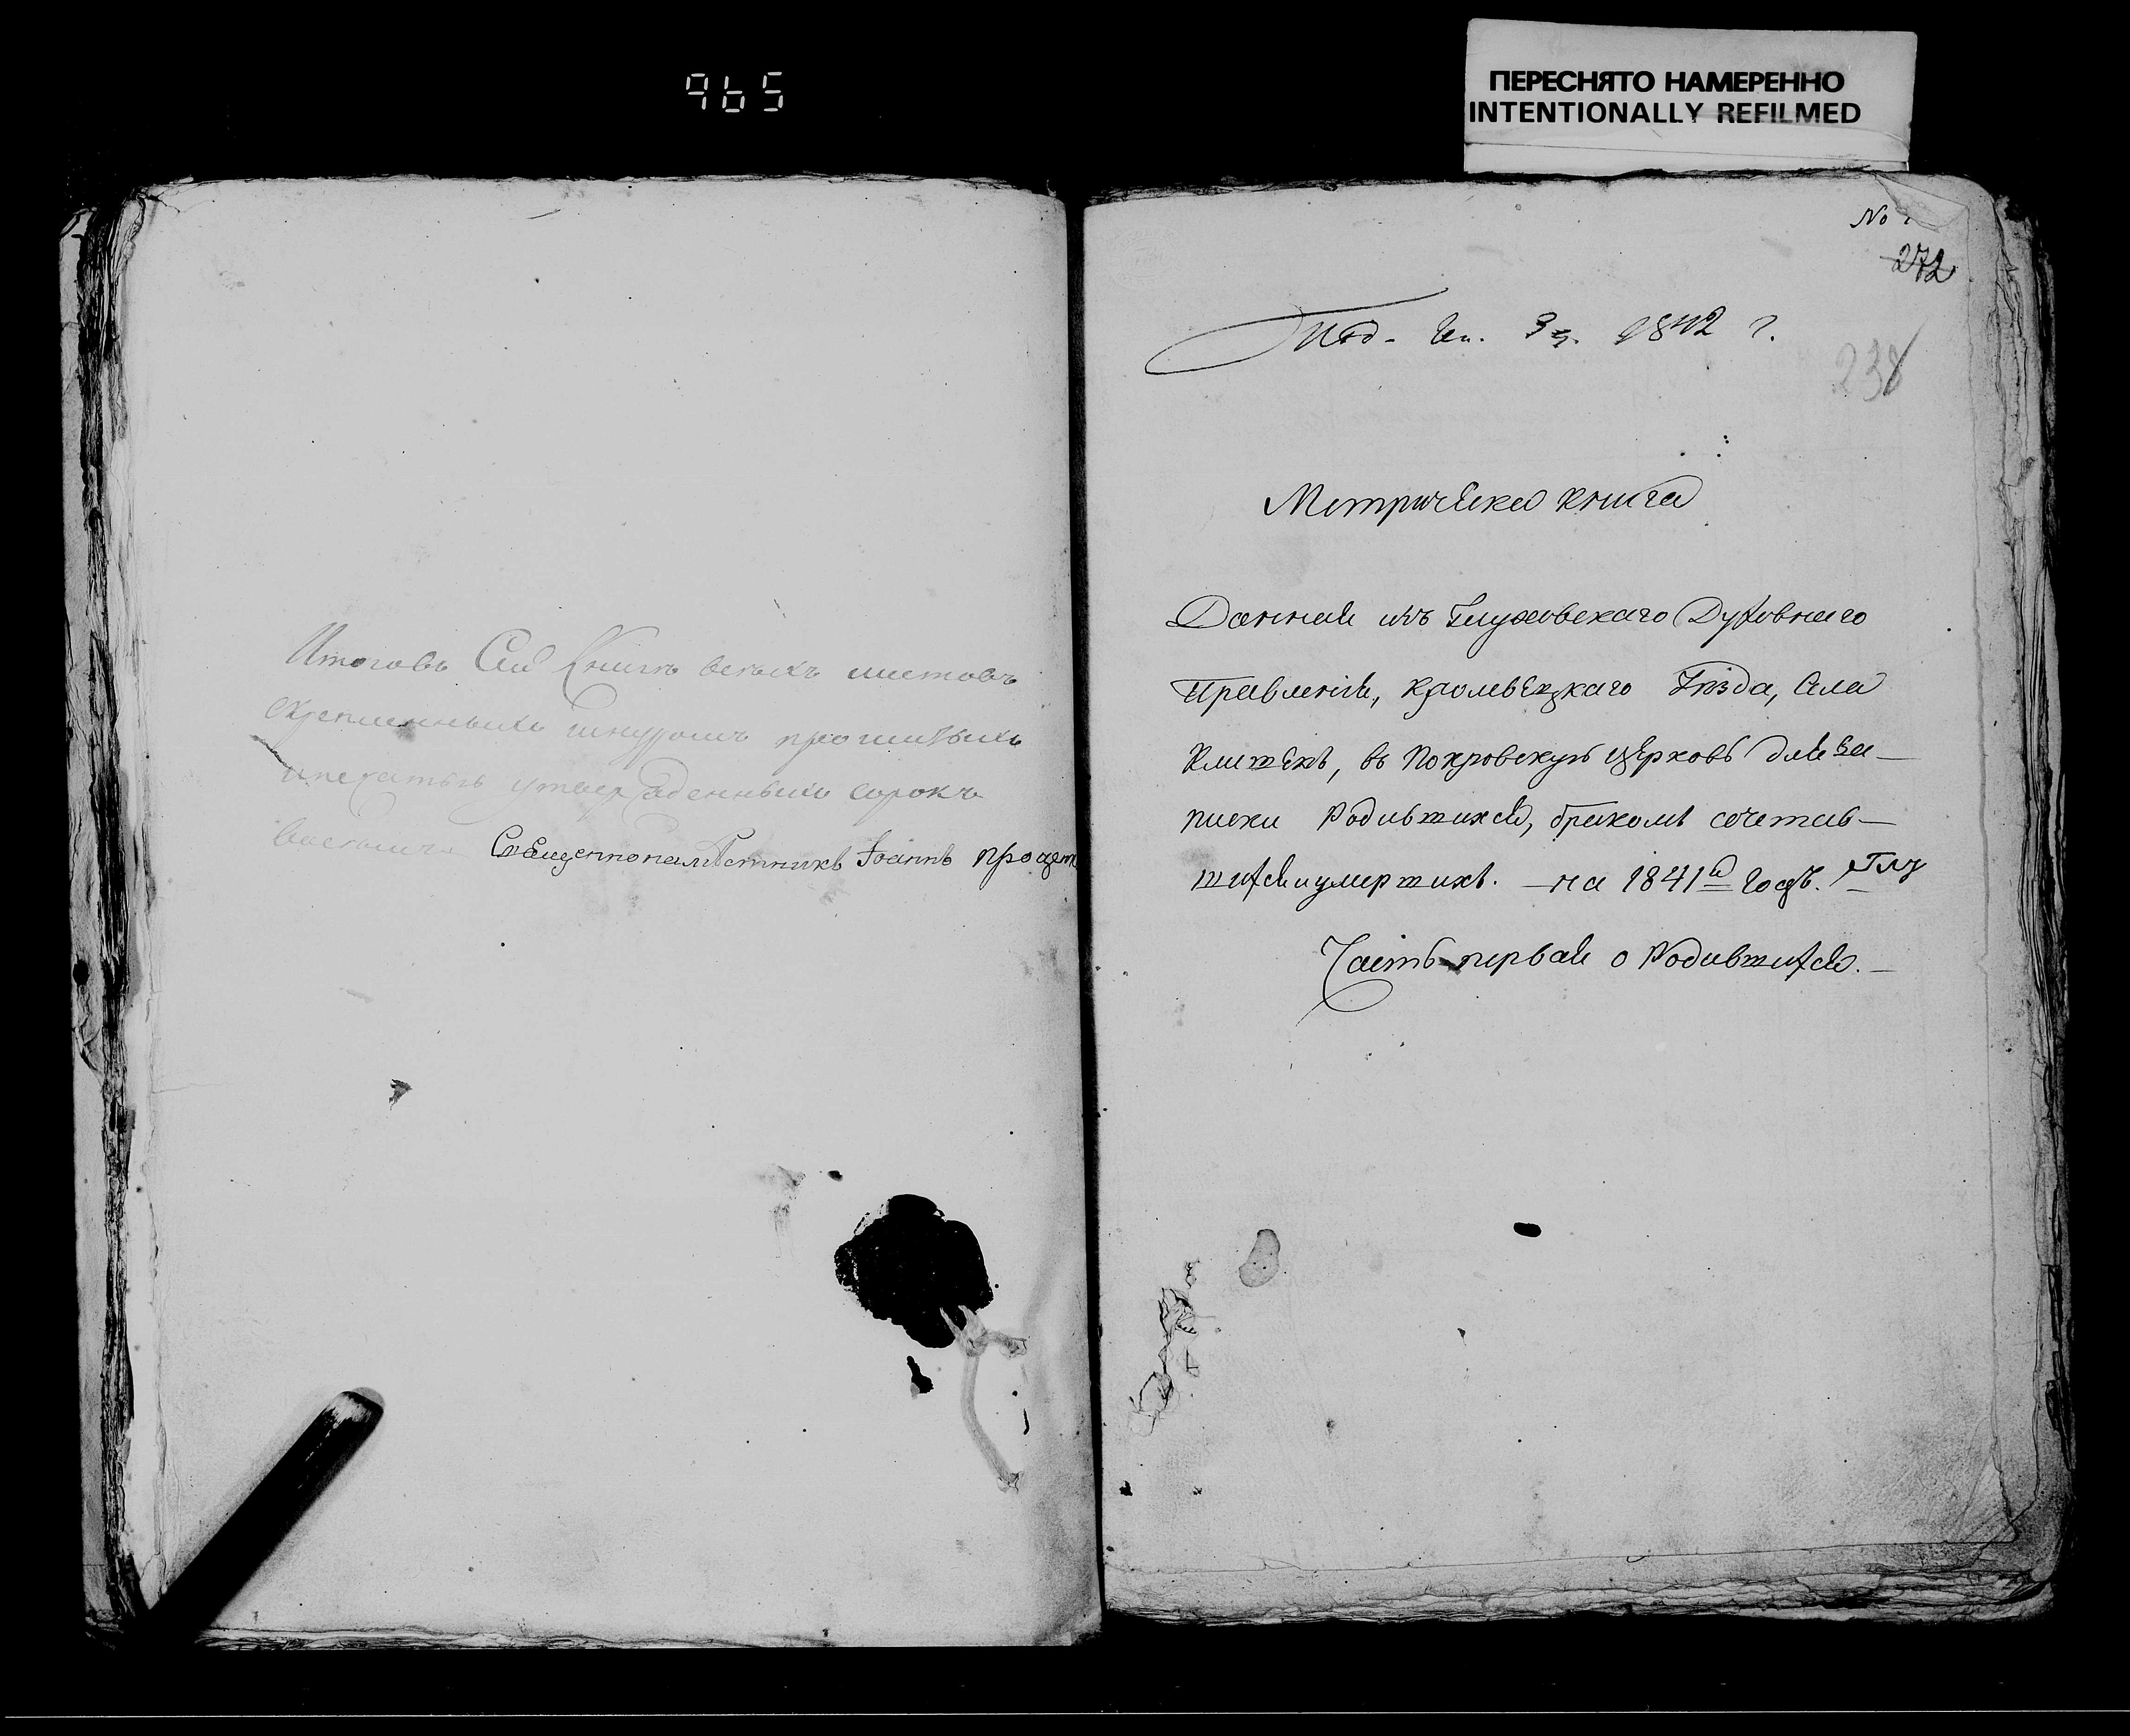 965
ПЕРЕСНЯТО НАМЕРЕННО
INTENTIONALLY REFILMED
Итоговъ Сей Книги всѣхъ листовъ
скрепленныхъ шнуромъ прошитыхъ
и печатью утвержденныхъ сорокъ
восемь. Священнонамѣстникъ Іоаннъ
No
272
1842 г.
238
Метрическа книга
Данная изъ Глуховскаго Духовнаго
Правленія, Кролевецкаго Уѣзда, Села
Клишекъ, въ Покровскую Церковъ для за-
писки Родившихся, бракомъ сочетав-
шихся и умершихъ. — на 1841й годъ.
Часть первая о Родившихся. —